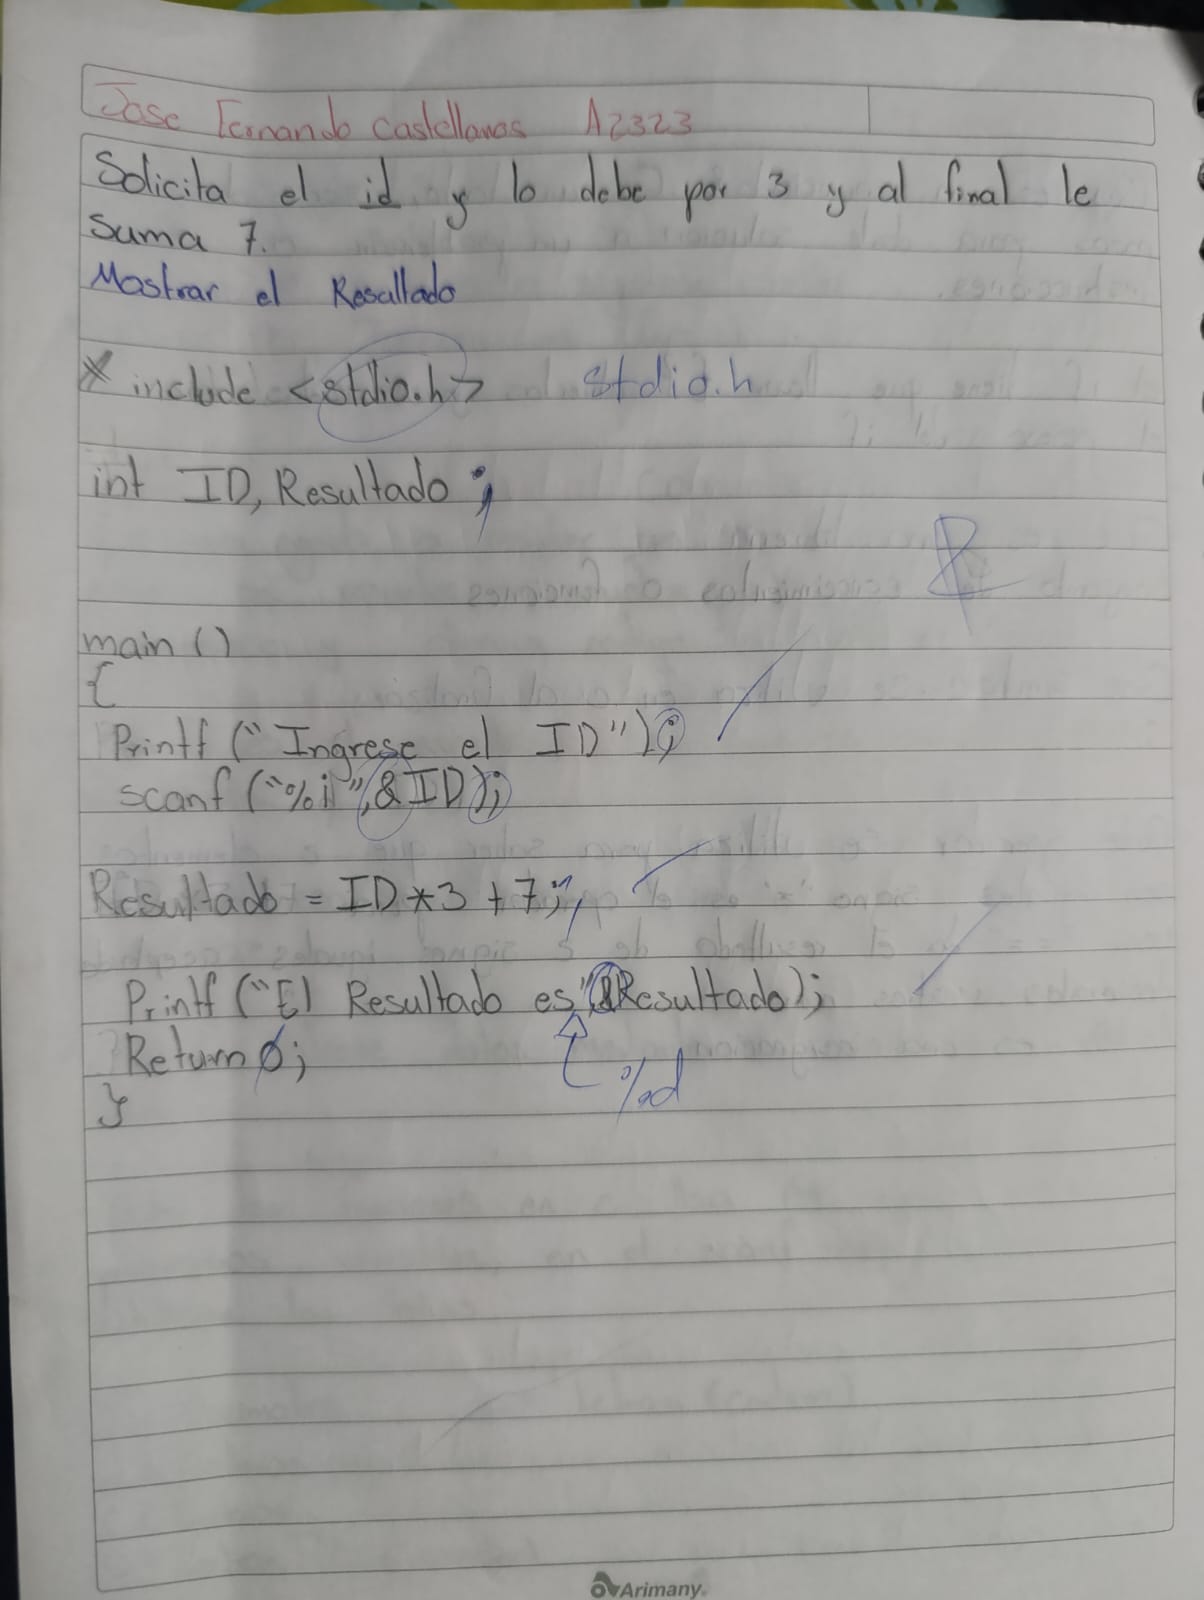 Jose Fernando Castellanos A2323
Solicita el id y lo debe por 3 y al final le
Suma 7.
Mostrar el Resultado
* include <stdio.h> stdio.h
int ID, Resultado ;
&
main ()
{
Printf ("Ingrese el ID");
scanf ("%i",&ID);
Resultado = ID *3 + 7;
Printf ("El Resultado es",&Resultado);
Return 0;
%d
}
Arimany